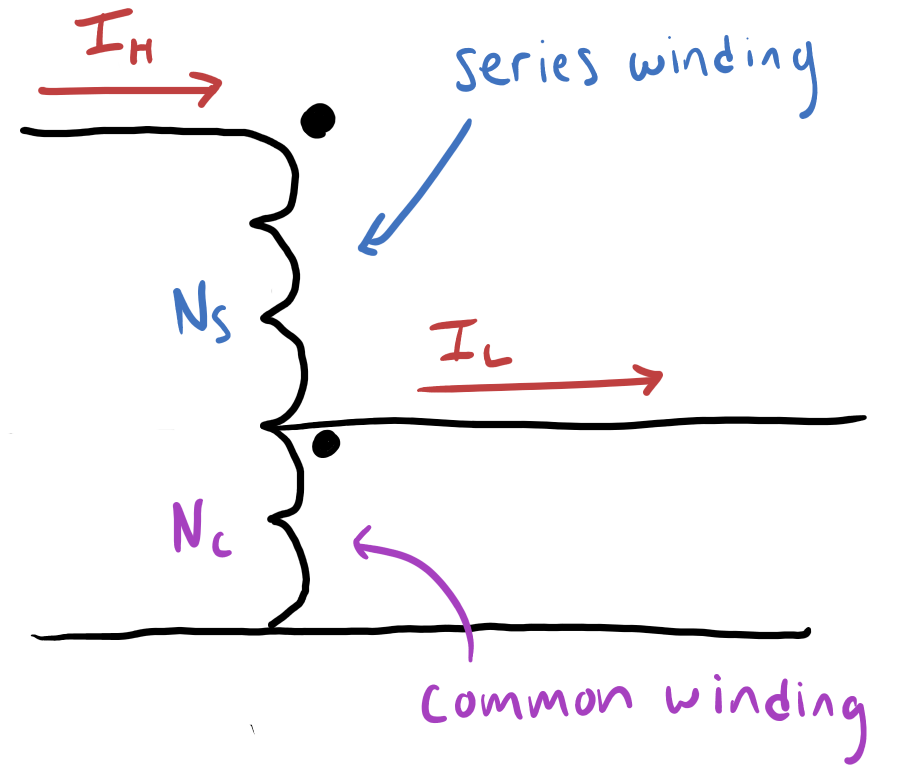 I_H
series winding
N_S
I_L
N_C
common winding